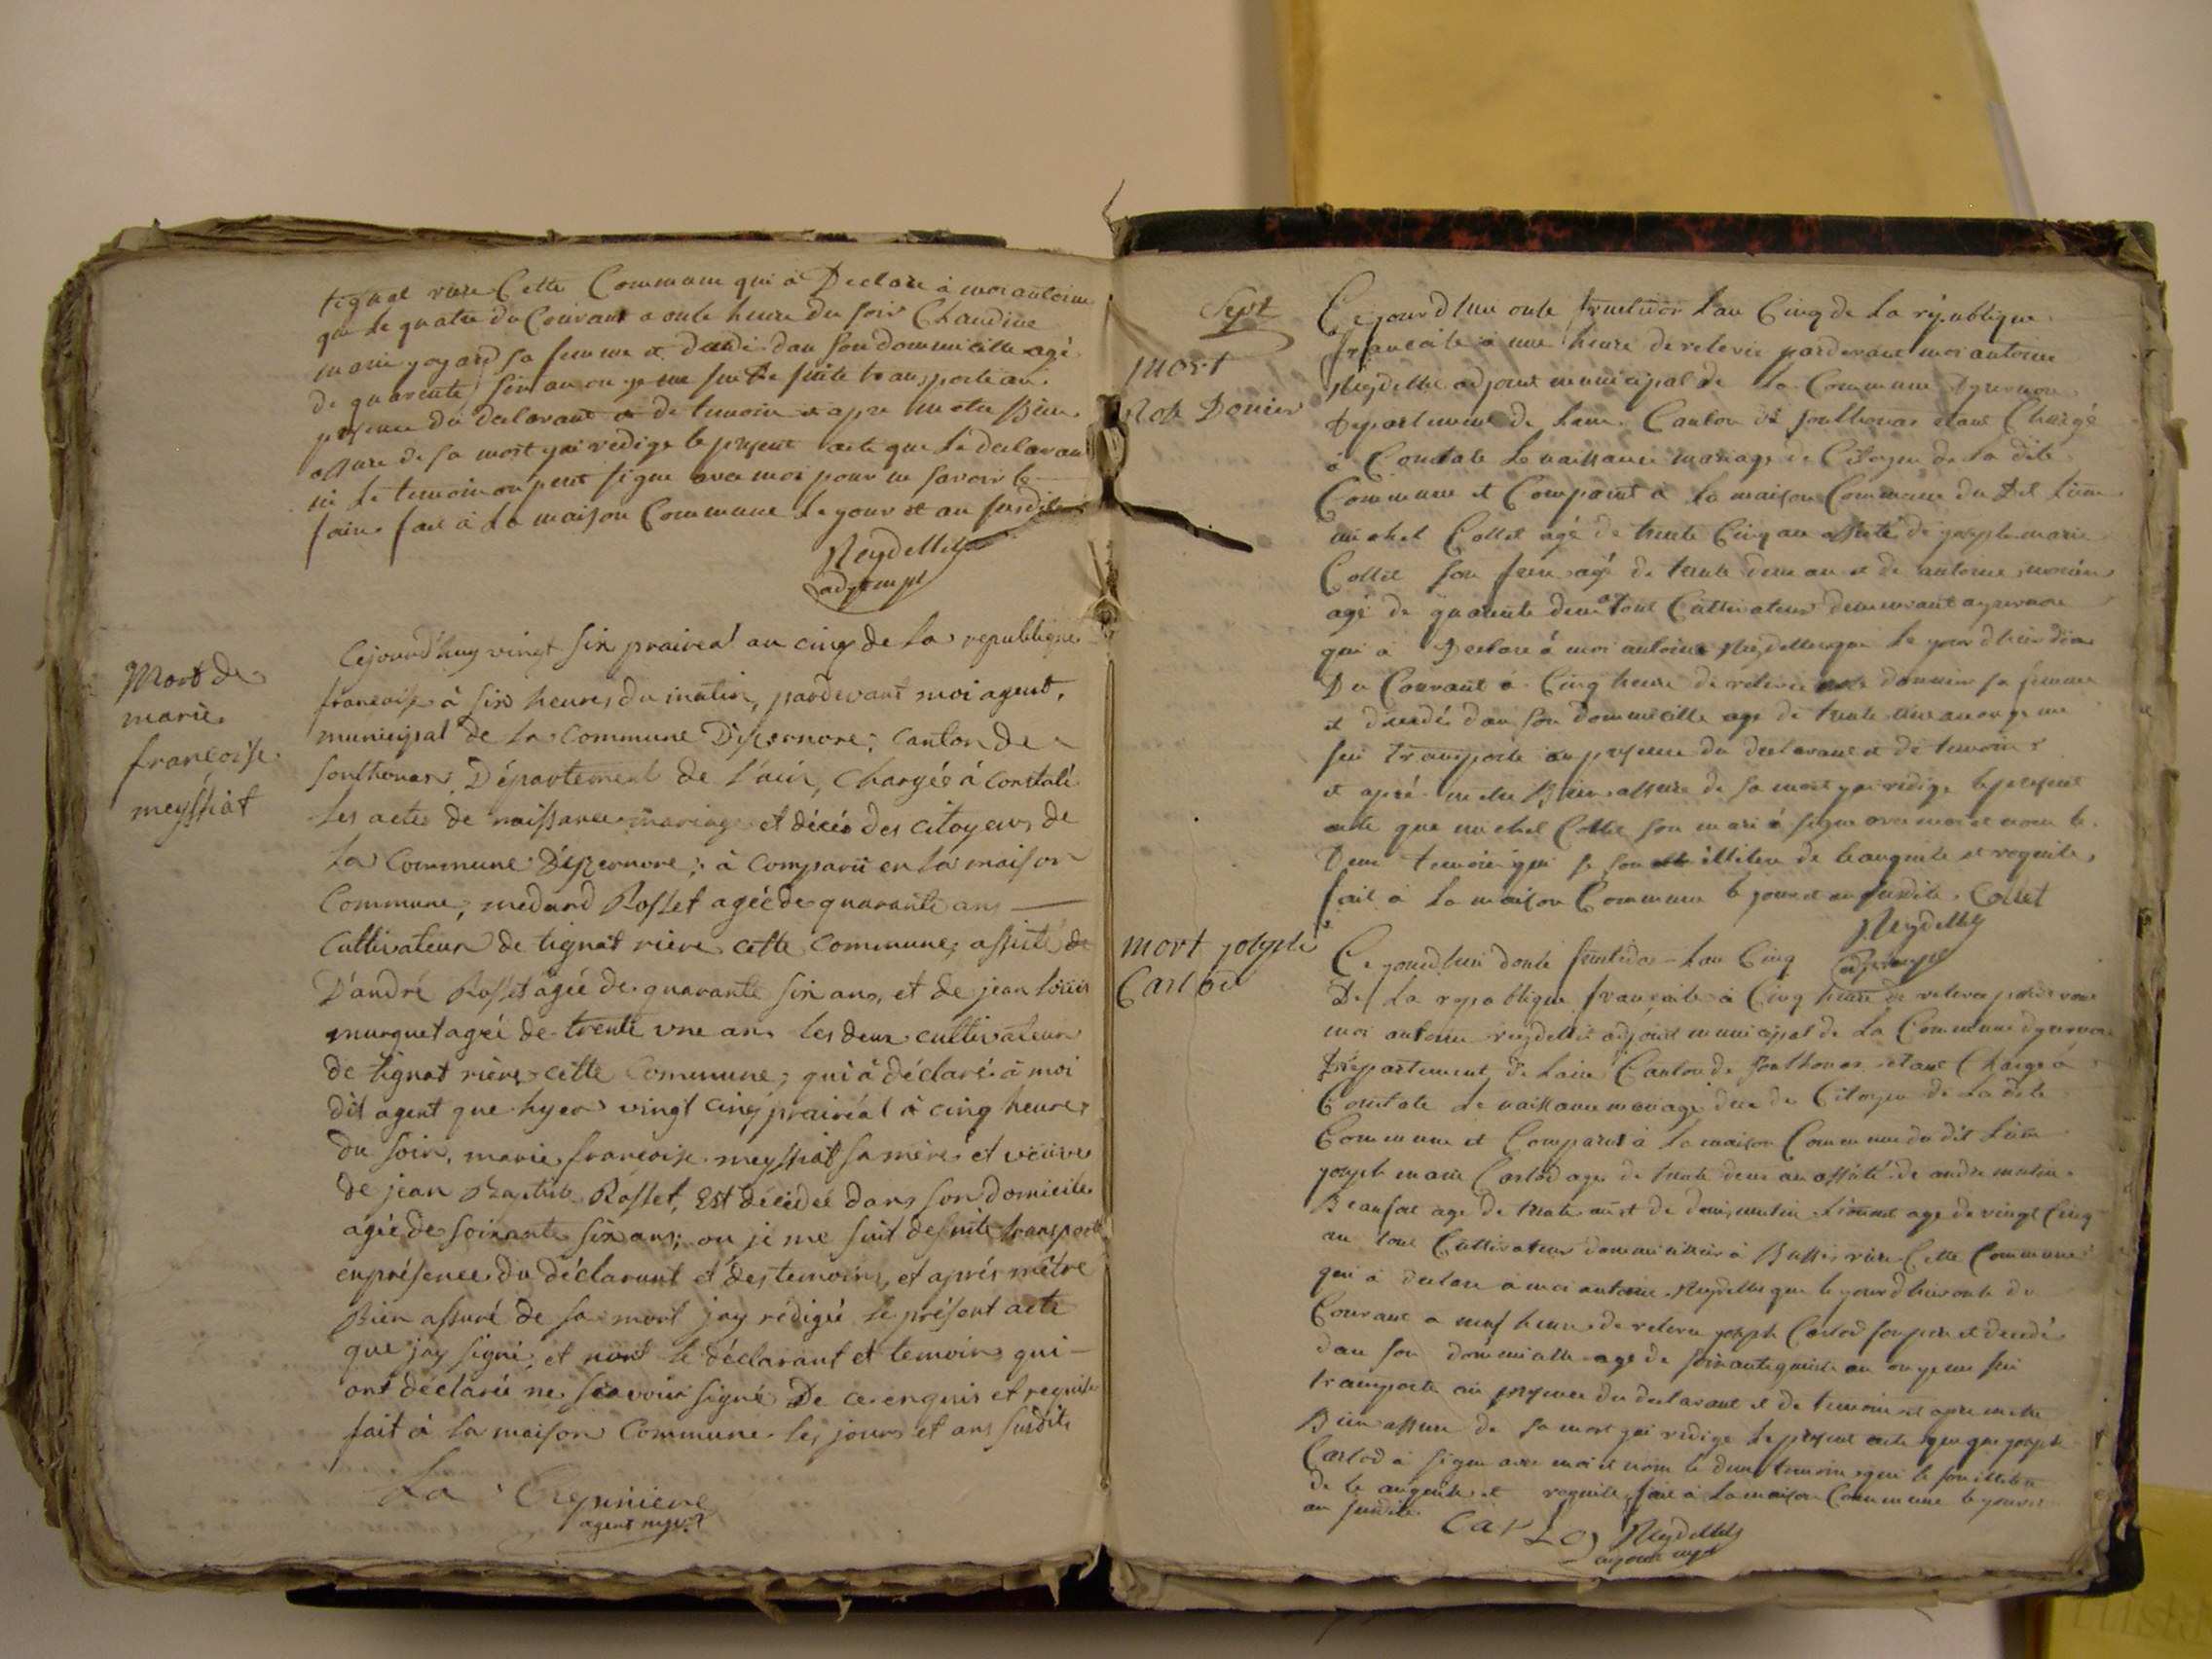 tignat riere Cette Commune qui à Declare à moi antoine
que le quatre du Courant a onle heure du soir Claudine
marie goyard sa femme et decedé dan son dommicille agé
de quarente six an ou je me suit de suite transporte au
presence du declarant et de temoin et apre metre Bien
assure de sa mort jai redige le present acte que le declarant
ni le temoin on peut signe avec moi pour ne savoir le
faire fait à la maison Commune le jour et an susdit
Reydellet
adjt mpl
Mort de
marie
françoise
meyssiat
Cejourd'huy vingt six praireal an cinq de la republique
françoise à six heures du matin, pardevant moi agent,
municipal de la Commune D'izernore; canton de
sonthonax, Département de l'ain, Chargée à constaté
Les actes de naissance mariage et décés des citoyens de
la Commune d'izernore; à comparü en la maison
Commune, medard Rosset agéé de quarante ans
cultivateur de tignat riere cette commune; assisté de
D'andré Rosset agéé de quarante six ans, et de jean loüis
murguet agéé de trente vne ans les deux cultivateurs
de tignat riere cette Commune; qui à déclaré à moi
dit agent que hyer vingt cinq prairéal à cinq heures
du soir, marie françoise meyssiat sa mère et veuve
de jean Baptiste Rosset, Est décedée dans son domicile
agée de soixante six ans; ou je me suit de suite transporté
en présence du déclarant et des temoins, et aprés mêtre
Bien assuré de sa mort jay rédigéé le présent acte
que jay signé, et nont le déclarant et temoins qui
ont déclaréé ne scavoir signé De ce enquis et requis
fait à la maison Commune les jours et ans susdits
La Crepiniere
agent mpl
Sept
mort
Rose Donier
Cejourd hui onle fructidor lan Cinq de la republique
francaile à une heure de relevée pardevant moi antoine
Reydellet adjoint municipal de la Commune dyzernore
Departement de lain Canton de sonthonax etant Chargé
à Constate le naissance mariage de Citoyen de la dite
Commune et Comparut à la maison Commune du dit lieu
michel Collet agé de trente Cinq an assité de joseph marie
Collet son frere agé de trente deux an et de antoine
agé de quarente deux an tout Cultivateur demeurant a yzernore
qui à Declare à moi antoine Reydellet que le jour d hier dix
Du Courant à Cinq heure de relevée donnier sa femme
et decedé dan son dommicille age de trente an ou je me
sui transporte au presence du declarant et de temoin
et apré metre Bien assure de sa mort jai redige le present
acte que michel Collet son mari à signe avec moi et non le
Deux temoin qui se son illitere de le anquite et requite,
fait à la maison Commune le jour et an susdite. Collet
Reydellet
adjt mpl
mort joseph
Carlod
Ce jourd hui doule fructidor lan Cinq
De la republique francaile à Cinq heure de relevee pardevant
moi antoine reydellet adjoint municipal de la Commune dyzernore
Département de lain Canton de sonthonax etant Chargé à
Constate le naissance mariage de Citoyen de la dite
Commune et Comparut à la maison Commune du dit lieu
joseph marie Carlod age de trente deux an assité de andre
Beaufort age de trente an et de age de vingt Cinq
an tout Cultivateur dommicillier à Bussi riere Cette Commune
qui à declare à moi antoine Reydellet que le jourd hier onle du
Courant a neuf heure de relevee joseph Carlod son pere et decedé
dan son dommicille age de soixante quinle an ou je me sui
transporte au presence du declarant et de temoin et apre metre
Bien assure de sa mort jai redige le present acte que joseph
Carlod à signe avec moi et nom le deux temoin qui se son illitere
de le anquite et requite fait à la maison Commune le jour et
an susdite. CarLod Reydellet
adjoint mpl